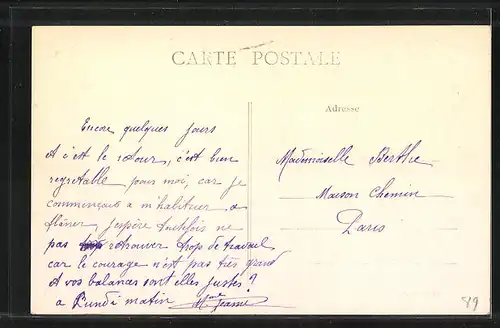 CARTE POSTALE
Adresse
Encore quelques jours
et c'est le retour, c'est bien
regretable pour moi, car je
commençais a m'habituer a
flâner, j'espère toutefois ne
pas trop retrouver trop de travail
car le courage n'est pas très grand
et vos balances sont elles justes?
a Lundi matin Mme Jeanne
Mademoiselle Berthe
Maison Chemin
Paris
89